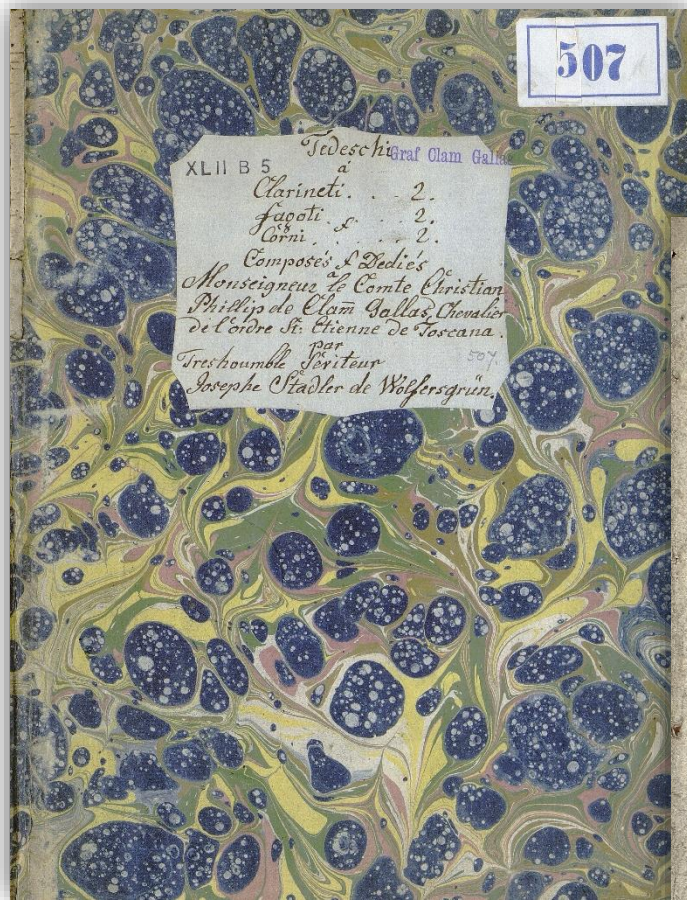 507
Tedeschi
Graf Clam Gallas
XLII B 5
à
Clarineti . . . 2.
fagoti . . . 2.
&
Corni . . . . 2.
Composés & Dediés
à
Monseigneur le Comte Christian
Phillip de Clam̄ Gallas, Chevalier
de l'ordre St: Etienne de Toscana.
par
Treshoumble Serviteur
507.
Josephe Stadler de Wolfersgrün.